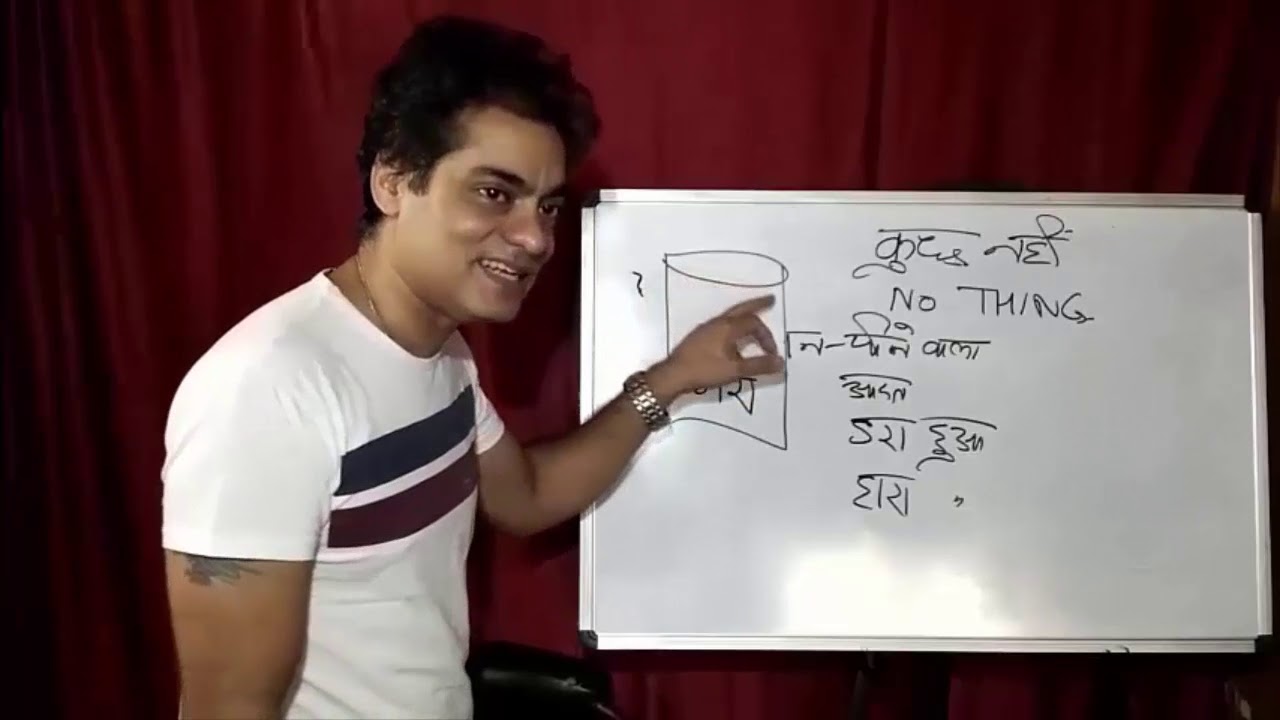 कुछ नहीं
NO THING
पीने वाला
आदत
डरा हुआ
हारा "